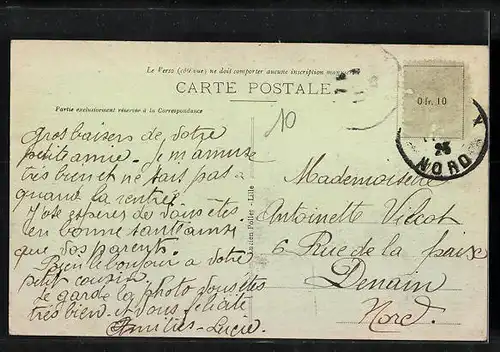 Le Verso (côté vue) ne doit comporter aucune inscription
CARTE POSTALE
Partie exclusivement réservée à la Correspondance
10
0 fr. 10
25
NORD
Gros baisers de votre
petite amie. Je m'amuse
très bien et ne sais pas
quand la rentrée
J'ose espérer de vous êtes
en bonne santé ainsi
que vos parents.
Bien le bonjour à votre
petit cousin
Je garde la photo vous êtes
très bien et vous félicite
Amitiés - Lucie.
Lucien Pollet - Lille
Mademoiselle
Antoinette Vilcot
6 Rue de la paix
Denain
Nord.